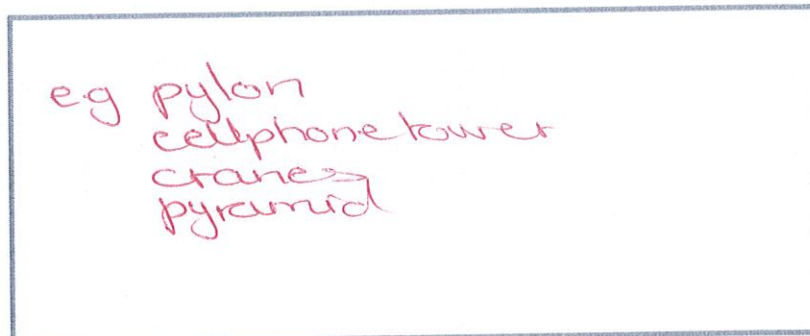 eg pylon
cellphone tower
cranes
pyramid